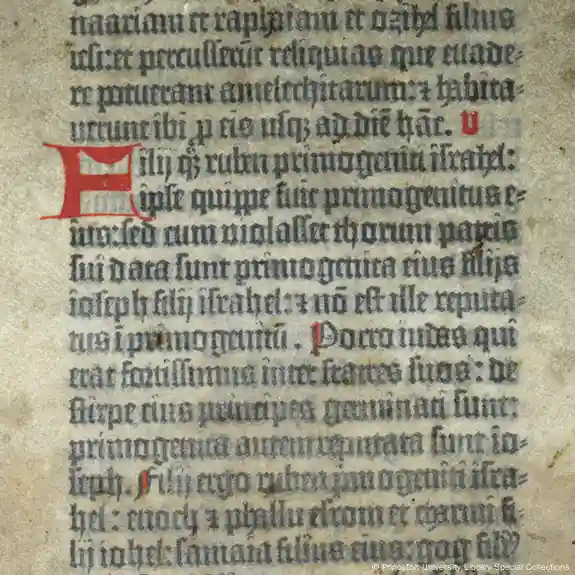 naariam et raphaiam et ozihel filius
iesi: et percusserūt reliquias que euade-
re potuerant amelechitarum: ⁊ habita-
uerunt ibi ꝓ eis usqꝫ ad diē hāc. V
Filij qꝫ ruben primogeniti israhel:
ipse quippe fuit primogenitus e-
ius: sed cum violasset thorum patris
sui data sunt primogenita eius filijs
ioseph filij israhel: ⁊ nō est ille reputa-
tus ī primogenitū. Porro iudas qui
erat fortissimus inter fratres suos: de
stirpe eius principes germinati sunt:
primogenita autem reputata sunt io-
seph. Filij ergo ruben primogeniti isra-
hel: enoch ⁊ phallu esrom et charmi fi-
lij iohel: samaia filius eius: gog fili⁹
© Princeton University Library Special Collections